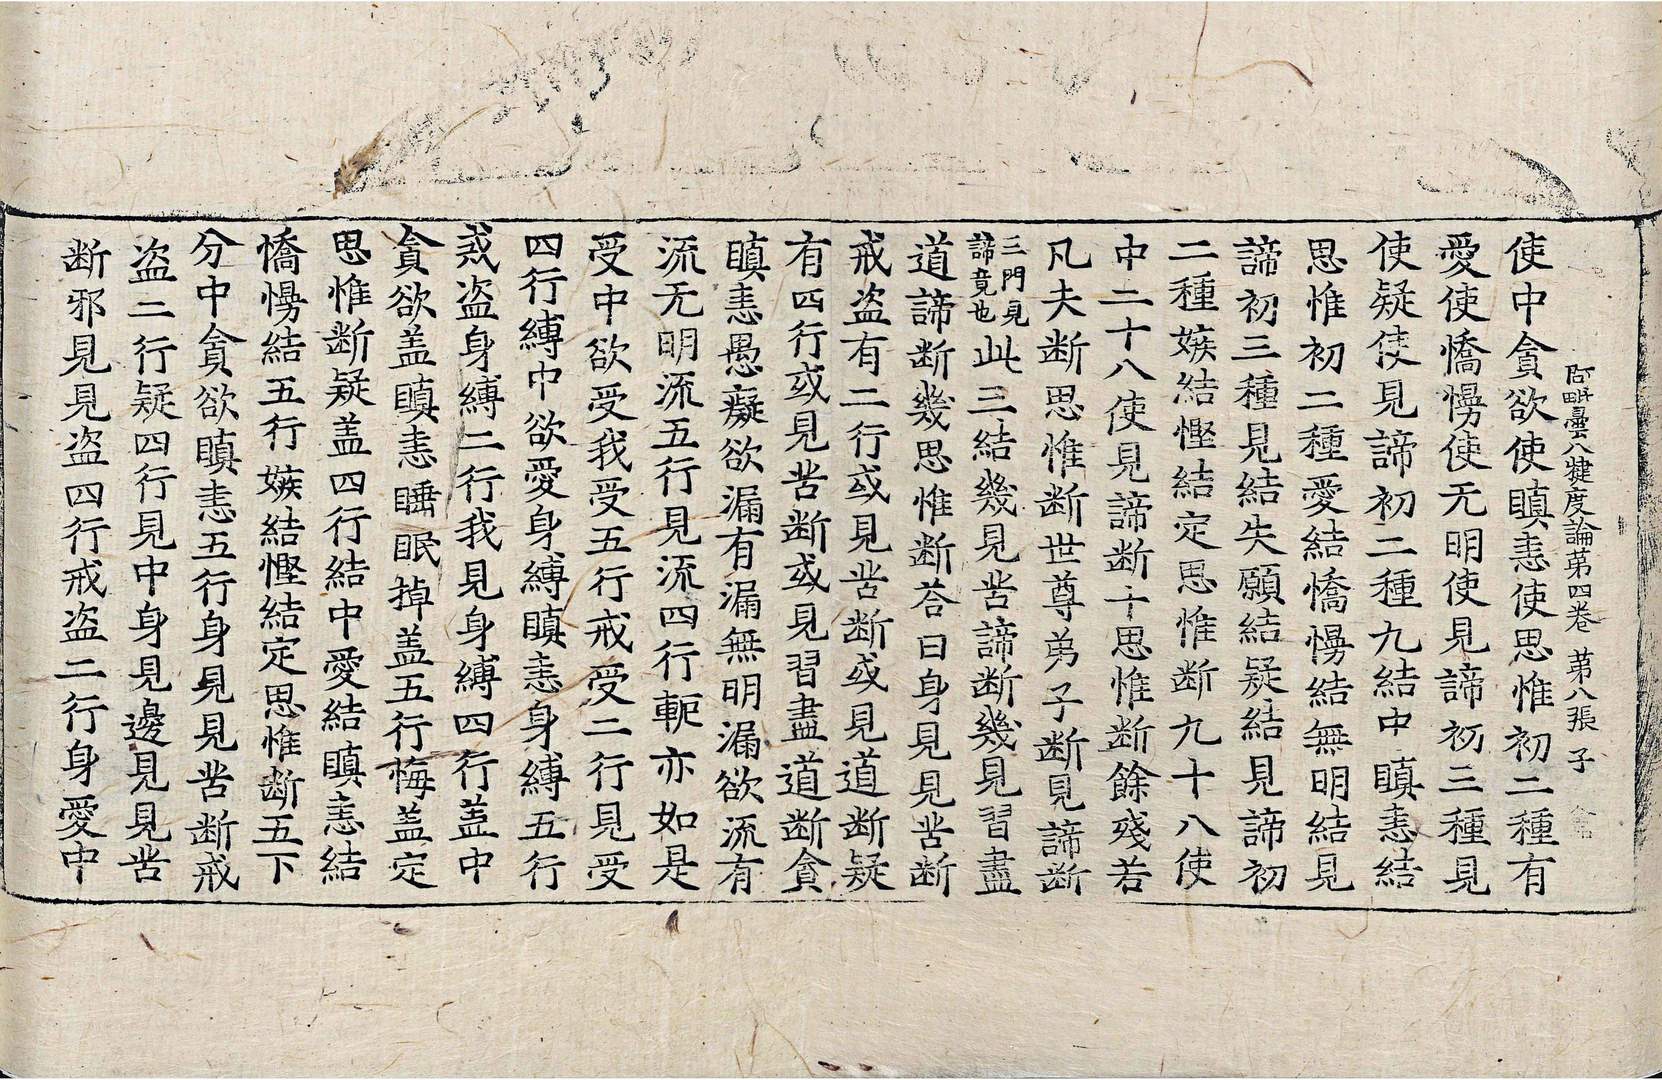 阿毗曇八犍度論第四卷　第八張　子
使中貪欲使瞋恚使思惟初二種有
愛使憍慢使无明使見諦初三種見
使疑使見諦初二種九結中瞋恚結
思惟初二種愛結憍慢結無明結見
諦初三種見結失願結疑結見諦初
二種嫉結慳結定思惟斷九十八使
中二十八使見諦断十思惟断餘殘若
凡夫断思惟断世尊弟子断見諦断
三門見諦竟也此三結幾見苦諦断幾見習盡
道諦断幾思惟断荅曰身見見苦断
戒盗有二行或見苦断或見道断疑
有四行或見苦断或見習盡道断貪
瞋恚愚癡欲漏有漏無明漏欲流有
流无明流五行見流四行軛亦如是
受中欲受我受五行戒受二行見受
四行縛中欲愛身縛瞋恚身縛五行
戒盗身縛二行我見身縛四行盖中
貪欲盖瞋恚睡眠掉盖五行悔盖定
思惟断疑盖四行結中愛結瞋恚結
憍慢結五行嫉結慳結定思惟断五下
分中貪欲瞋恚五行身見見苦断戒
盗二行疑四行見中身見邊見見苦
断邪見見盗四行戒盗二行身愛中